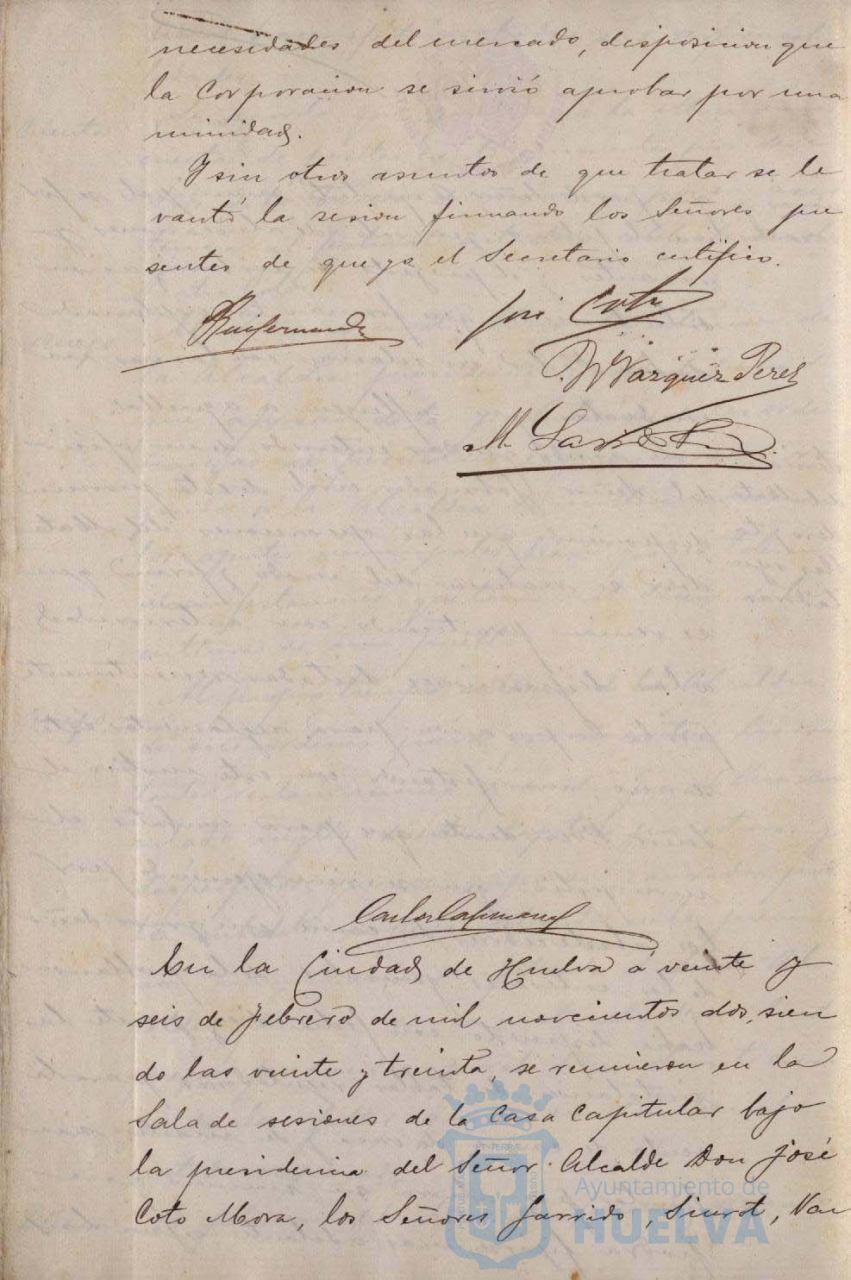 necesidades del mercado, disposicion que
la Corporacion se sirvió aprobar por una
nimidad.
Y sin otros asuntos de que tratar se le
vantó la sesion firmando los Señores pre
sentes de que yo el Secretario certifico.
José Coto
Vazquez Perez
M
Carlos
En la Ciudad de Huelva á veinte y
seis de Febrero de mil novecientos dos, sien
do las veinte y treinta, se reunieron en la
Sala de sesiones de la Casa Capitular bajo
la presidencia del Señor Alcalde Don José
Coto Mora, los Señores Garrido, Siurot, Vaz
Ayuntamiento de
HUELVA